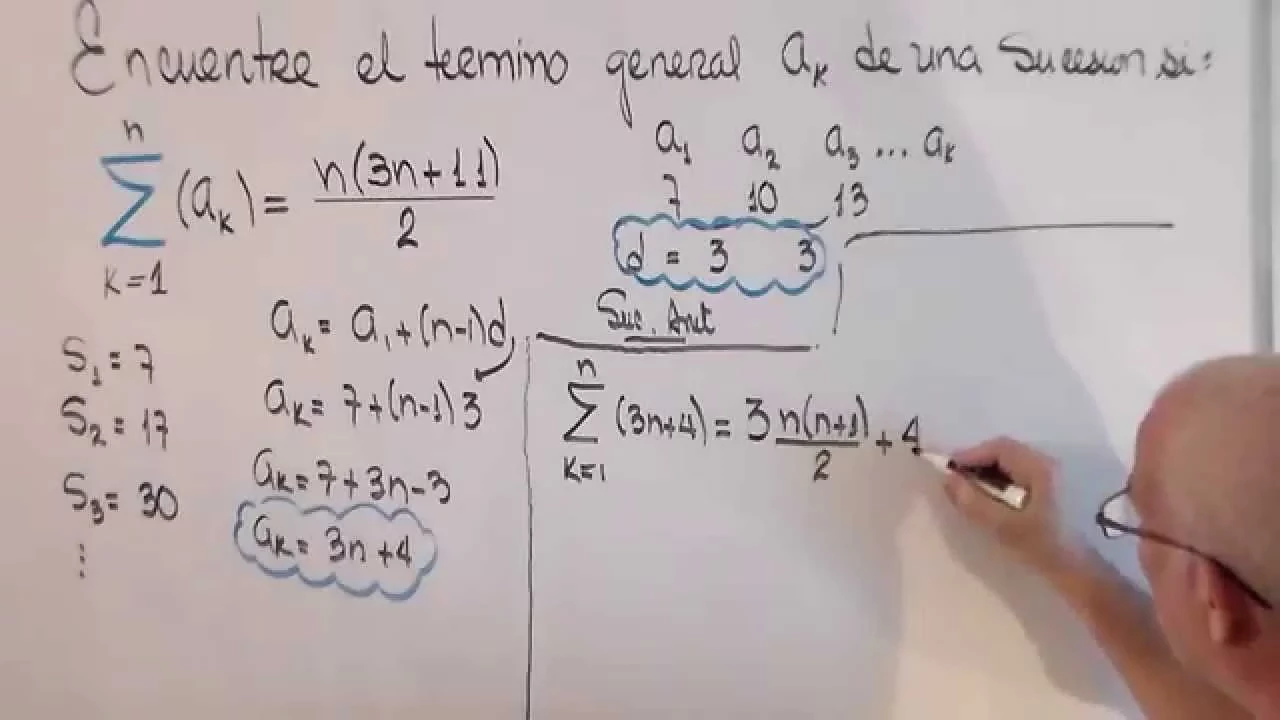 Encuentre el termino general aₖ de una Sucesion si:
n
∑ (aₖ) = n(3n+11)/2
k=1
a₁ a₂ a₃ ... aₖ
7 10 13
d = 3 3
Suc. Arit
S₁ = 7
S₂ = 17
S₃ = 30
⋮
aₖ = a₁ + (n-1)d
aₖ = 7 + (n-1)3
aₖ = 7 + 3n - 3
aₖ = 3n + 4
n
∑ (3n+4) = 3 n(n+1)/2 + 4
k=1